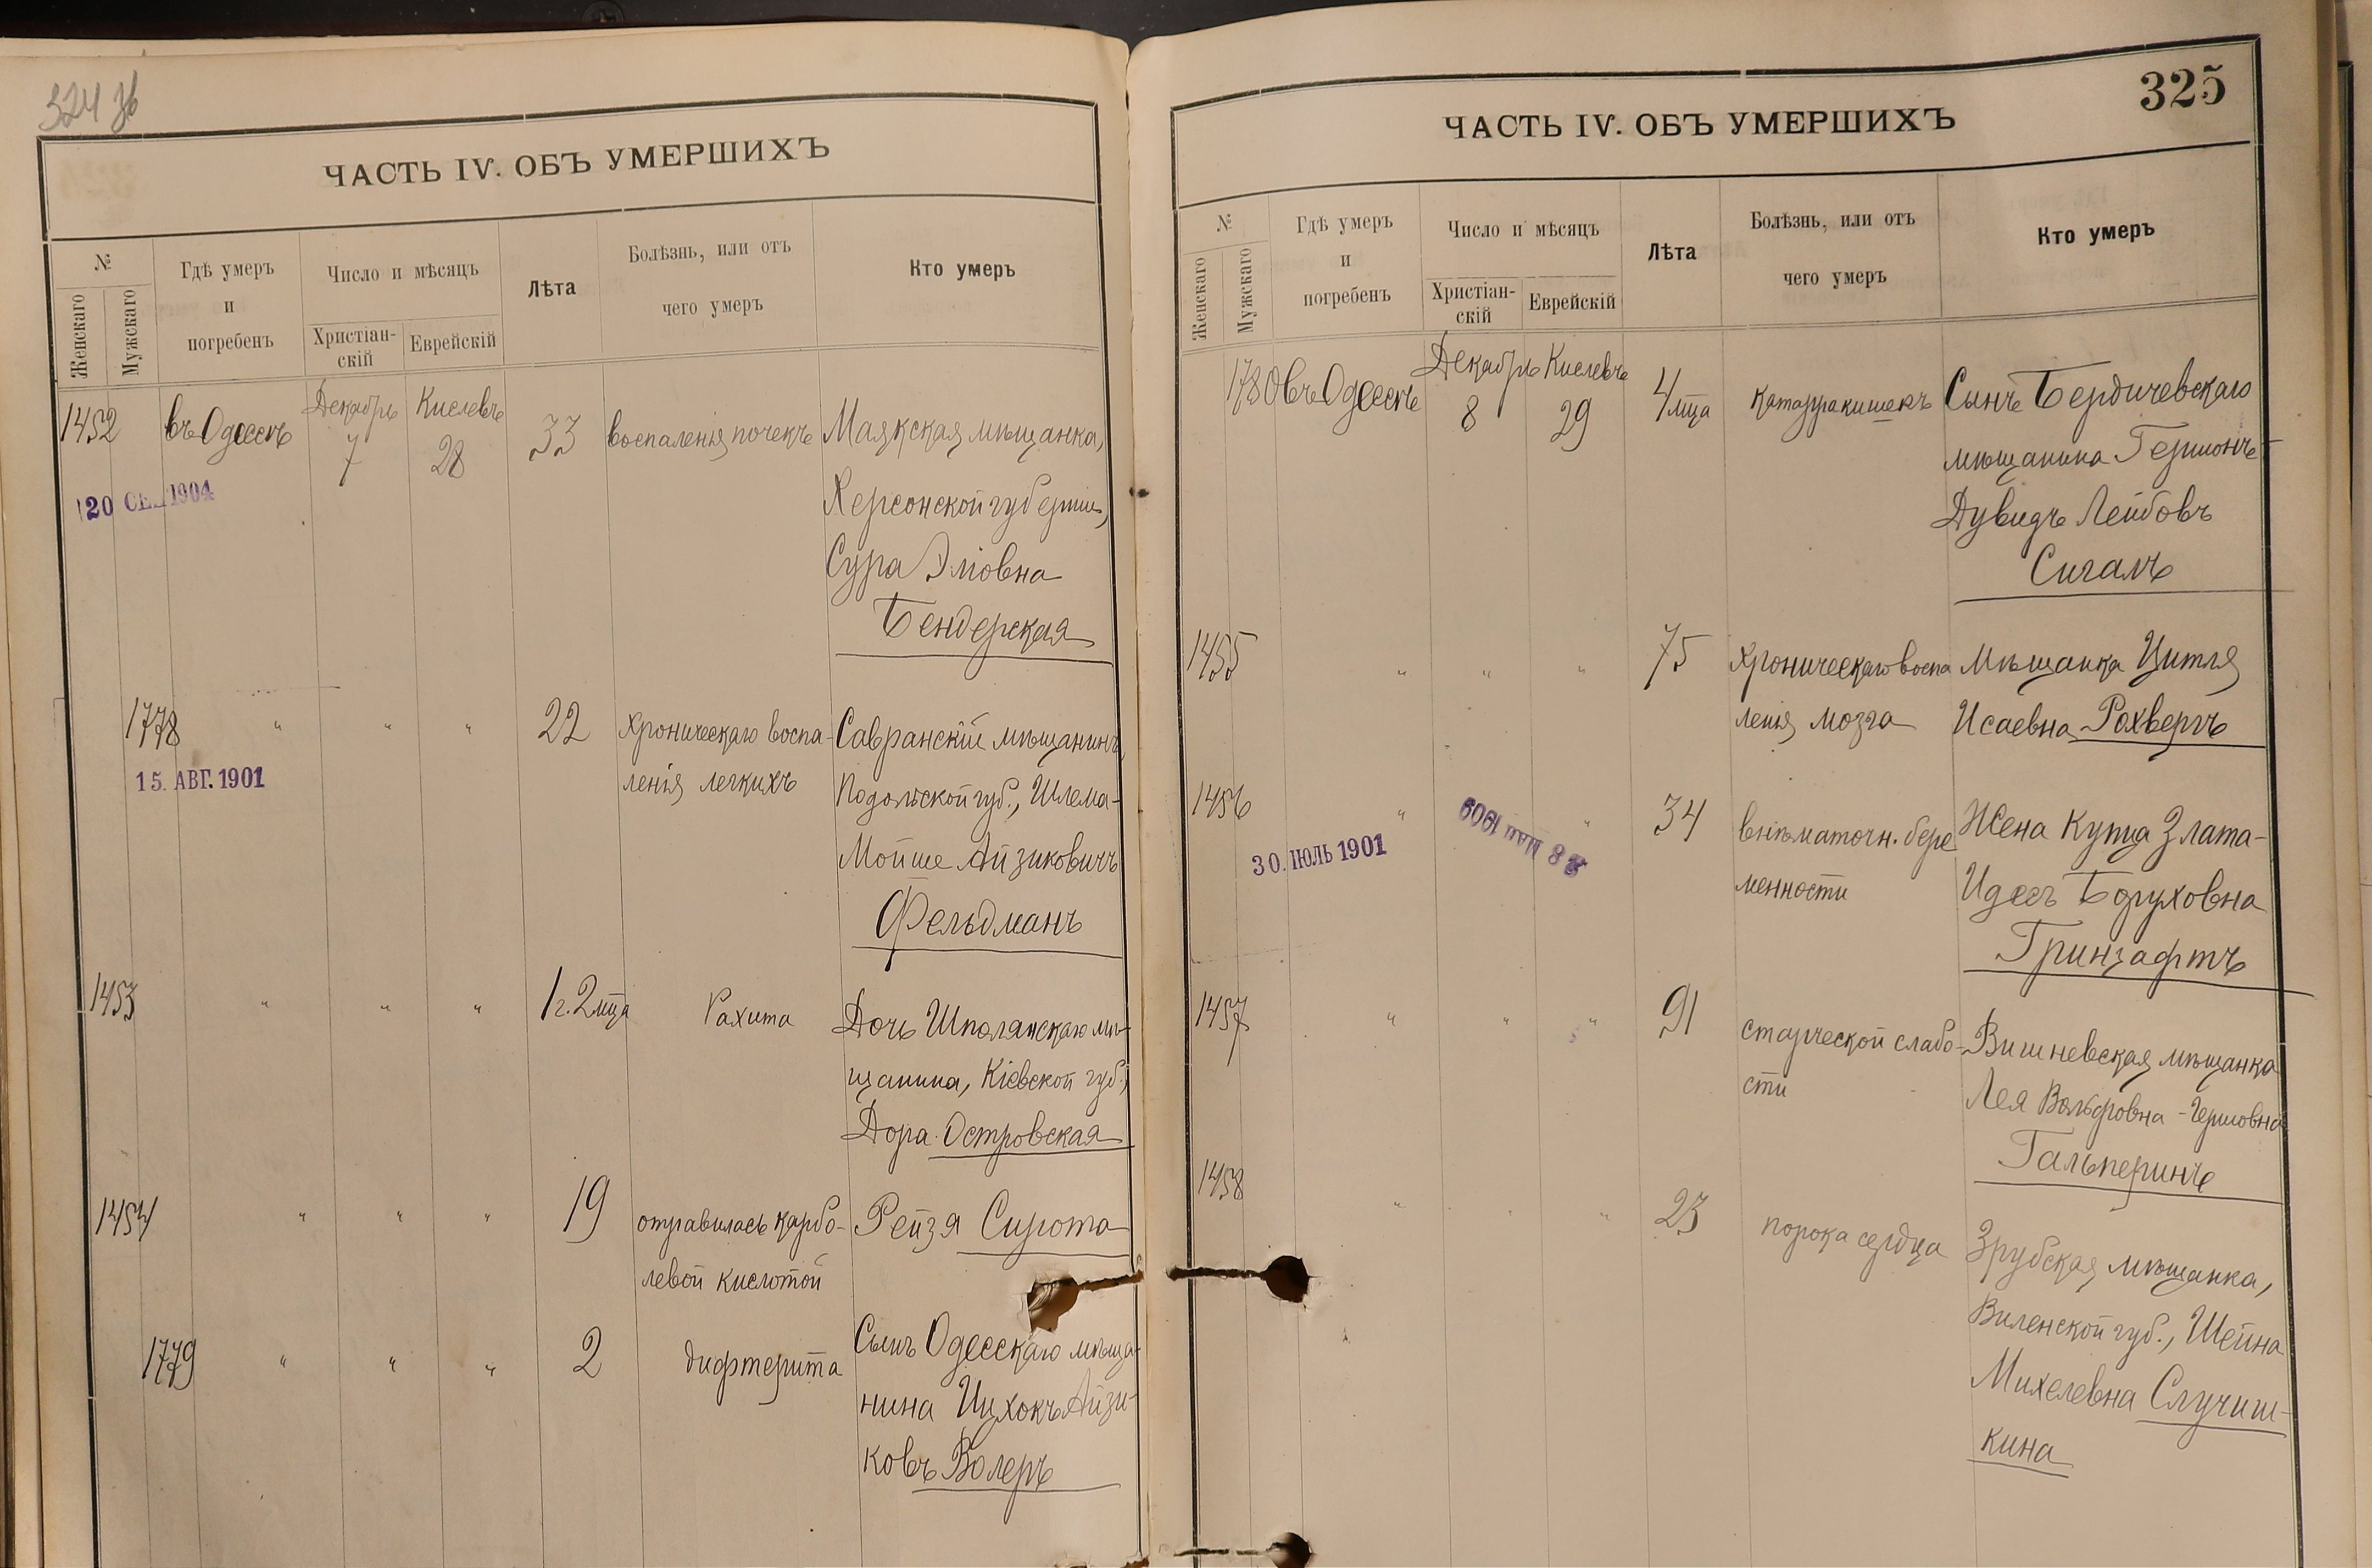 324 зв
ЧАСТЬ IV. ОБЪ УМЕРШИХЪ
№
Женскаго
Мужскаго
Гдѣ умеръ
и
погребенъ
Число и мѣсяцъ
Христіан-
скій
Еврейскій
Лѣта
Болѣзнь, или отъ
чего умеръ
Кто умеръ
1452
въ Одессѣ
Декабрь
7
Кислевъ
28
33
воспаленія почекъ
Маякская мѣщанка,
Херсонской губерніи,
Сура Эліовна
Бендерская
120 СЕН 1904
1778
" " "
22
хроническаго воспа-
ленія легкихъ
Савранскій мѣщанинъ
Подольской губ., Шлема-
Мойше Айзиковичъ
Фельдманъ
15. АВГ. 1901
1453
" " "
1 г. 2 мца
Рахита
Дочь Шполянскаго мѣ-
щанина, Кіевской губ.,
Дора Островская
1454
" " "
19
отравилась карбо-
левой кислотой
Рейзя Сирота
1779
" " "
2
дифтерита
Сынъ Одесскаго мѣща-
нина Ицхокъ Айзи-
ковъ Волеръ
325
ЧАСТЬ IV. ОБЪ УМЕРШИХЪ
№
Женскаго
Мужскаго
Гдѣ умеръ
и
погребенъ
Число и мѣсяцъ
Христіан-
скій
Еврейскій
Лѣта
Болѣзнь, или отъ
чего умеръ
Кто умеръ
1780
въ Одессѣ
Декабрь
8
Кислевъ
29
4 мца
катарра кишекъ
Сынъ Бердичевскаго
мѣщанина Гершонъ-
Дувидъ Лейбовъ
Сигалъ
1455
" " "
75
хроническаго воспа
ленія мозга
Мѣщанка Цитля
Исаевна Рохвергъ
1456
" "
34
внѣматочн. бере
менности
Жена Купца Злата-
Идесъ Боруховна
Гринзафтъ
30. ІЮЛЬ 1901
28 МАЙ 1909
1457
" " "
91
старческой слабо-
сти
Вишневская мѣщанка
Лея Вольфовна-Гершовна
Гальперинъ
1458
" " "
23
порока сердца
Зрубская мѣщанка,
Виленской губ., Шейна
Михелевна Случиш-
кина